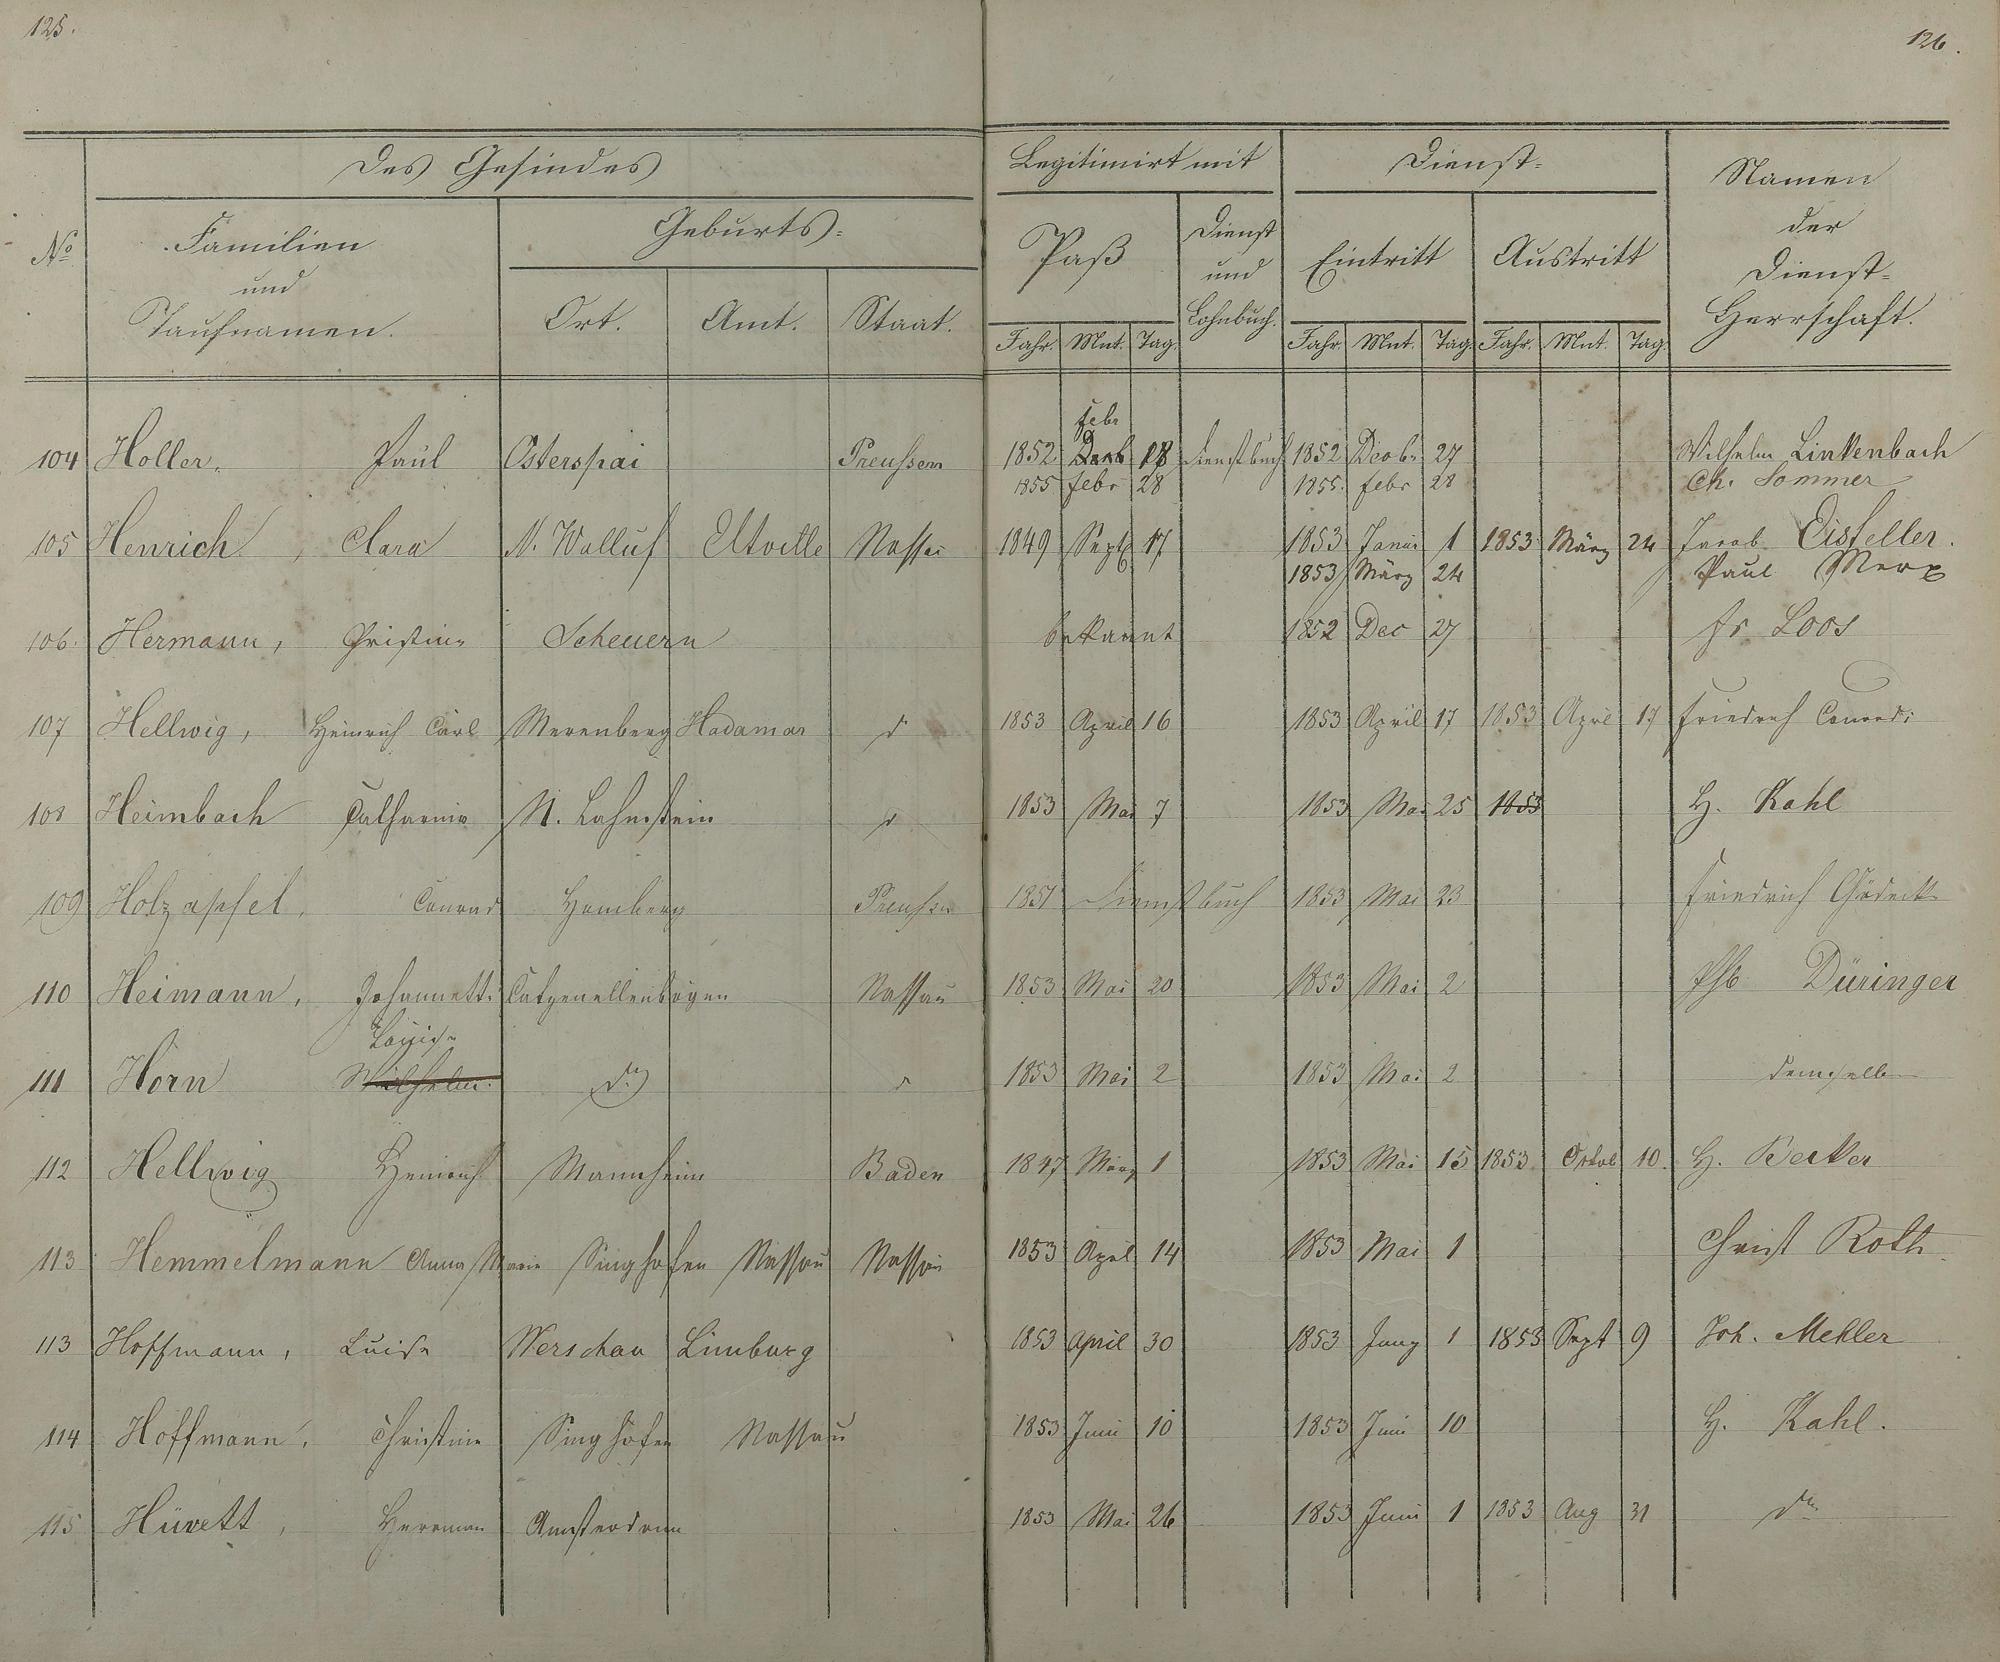 125.
126.
Des Gesindes
Legitimirt mit
Dienst-
Namen der Dienst-Herrschaft.
No
Familien und Taufnamen.
Geburts-
Paß
Dienst und Lohnbuch.
Eintritt
Austritt
Ort. Amt. Staat.
Jahr. Mnt. Tag. Jahr. Mnt. Tag. Jahr. Mnt. Tag.
febr
104 Holler, Paul Osterspai Preussen 1852 18 Dienstbuch 1852 Decbr 27 Wilhelm Linkenbach
1855 febr 28 1855. febr 28 Ch. Sommer
105 Henrich, Clara N. Walluf Eltville Nassau 1849 Sept 17 1853 Januar 1 1853 März 24 Jacob Eisfeller.
1853 März 24 Paul Merx
106. Hermann, Christine Scheuern bekannt 1852 Dec 27 Fr Loos
107 Hellwig, Heinrich Carl Merenberg Hadamar d 1853 April 16 1853 April 17 1853 April 17 Friedrich Conradi
108 Heimbach Catharina N. Lahnstein d 1853 Mai 7 1853 Mai 25 1853 H. Kahl
109 Holzapfel, Conrad Homberg Preussen 1851 Dienstbuch 1853 Mai 23 Friedrich Gödecke
110 Heimann, Johannette Catzenellenbogen Nassau 1853 Mai 20 1853 Mai 2 Phb Düringer
Louise
111 Horn Wilhelm. do d 1853 Mai 2 1853 Mai 2 demselben
112 Hellwig Heinrich Mannheim Baden 1847 März 1 1853 Mai 15 1853 Octob 10. H. Becker
113 Hemmelmann Anna Marie Singhofen Nassau Nassau 1853 April 14 1853 Mai 1 Christ Roth
113 Hoffmann, Luise Werschau Limburg 1853 April 30 1853 Juny 1 1853 Sept 9 Joh. Mehler
114 Hoffmann, Christine Singhofen Nassau 1853 Juni 10 1853 Juni 10 H. Kahl.
115 Hüvett, Herrman Amsterdam 1853 Mai 26 1853 Juni 1 1853 Aug 31 do